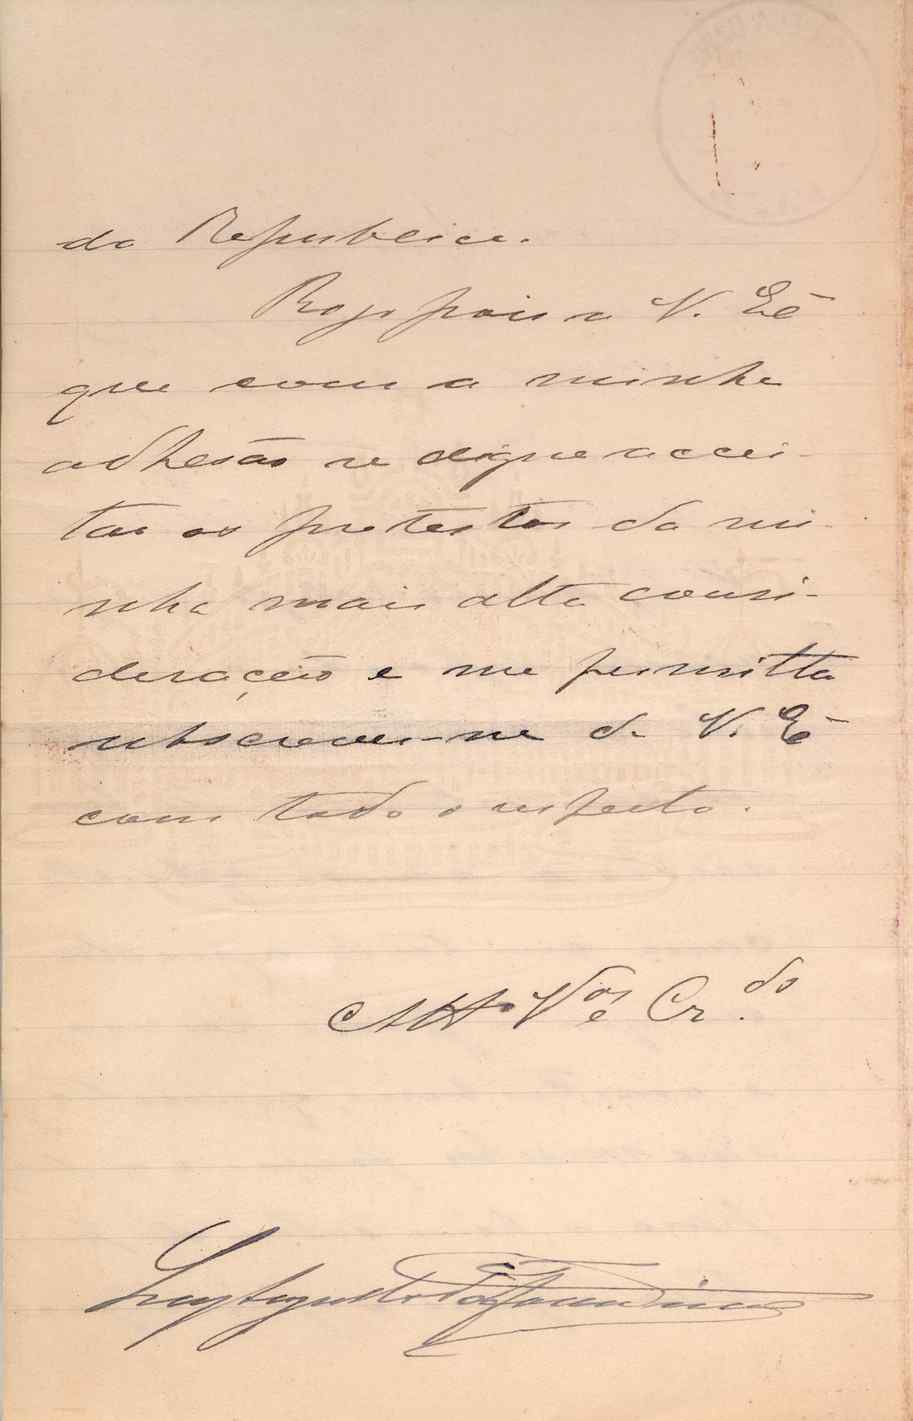 da Republica.
Rogo pois a V. Exª
que com a minha
adhesão se digne accei-
tar os protestos da mi-
nha mais alta consi-
deração e me permitta
subscrever-me de V. Exª
com todo o respeito.
Attº Vºr e Cr.do
Luiz Augusto